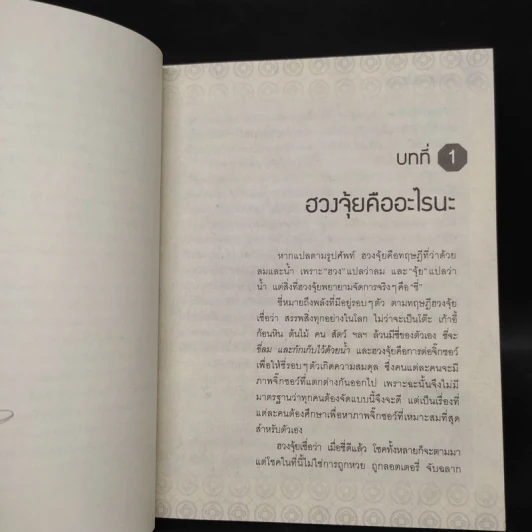 บทที่ 1
ฮวงจุ้ยคืออะไรนะ
หากแปลตามรูปศัพท์ ฮวงจุ้ยคือทฤษฎีที่ว่าด้วย
ลมและน้ำ เพราะ "ฮวง" แปลว่าลม และ "จุ้ย" แปลว่า
น้ำ แต่สิ่งที่ฮวงจุ้ยพยายามจัดการจริงๆ คือ "ชี่"
ชี่หมายถึงพลังที่มีอยู่รอบๆ ตัว ตามทฤษฎีฮวงจุ้ย
เชื่อว่า สรรพสิ่งทุกอย่างในโลก ไม่ว่าจะเป็นโต๊ะ เก้าอี้
ก้อนหิน ต้นไม้ คน สัตว์ ฯลฯ ล้วนมีชี่ของตัวเอง ชี่จะ
ขี่ลม และกักเก็บไว้ด้วยน้ำ และฮวงจุ้ยคือการต่อจิ๊กซอว์
เพื่อให้ชี่รอบๆ ตัวเกิดความสมดุล ซึ่งคนแต่ละคนจะมี
ภาพจิ๊กซอว์ที่แตกต่างกันออกไป เพราะฉะนั้นจึงไม่มี
มาตรฐานว่าทุกคนต้องจัดแบบนี้จึงจะดี แต่เป็นเรื่องที่
แต่ละคนต้องศึกษาเพื่อหาภาพจิ๊กซอว์ที่เหมาะสมที่สุด
สำหรับตัวเอง
ฮวงจุ้ยเชื่อว่า เมื่อชี่ดีแล้ว โชคทั้งหลายก็จะตามมา
แต่โชคในที่นี้ไม่ใช่การถูกหวย ถูกลอตเตอรี่ จับฉลาก